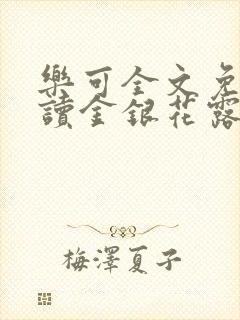 樂可全文免
讀金銀花露
梅澤夏子